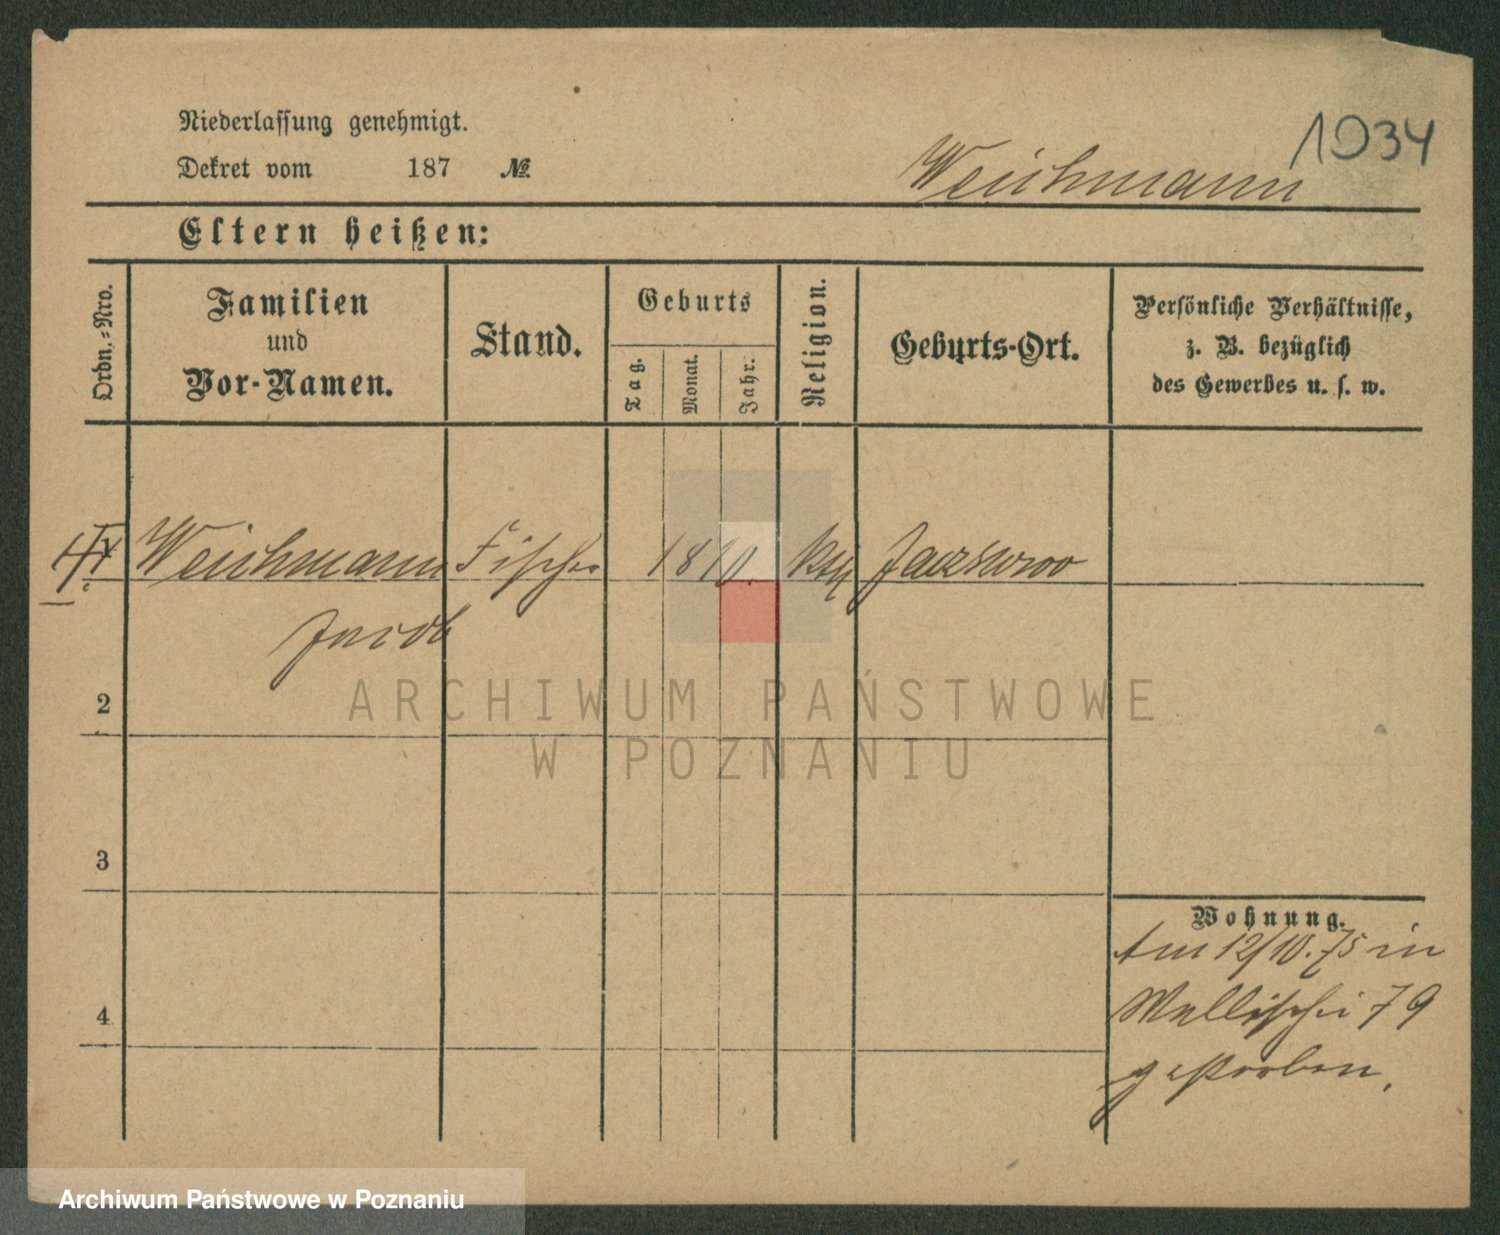 1934
Niederlassung genehmigt.
Dekret vom 187 №
Weichmann
Eltern heißen:
Ordn.-Nro.
Familien
und
Vor-Namen.
Stand.
Geburts
Tag.
Monat.
Jahr.
Religion.
Geburts-Ort.
Persönliche Verhältnisse,
z. B. bezüglich
des Gewerbes u. s. w.
Weichmann Fischer 1810. Jacob
2
3
4
Wohnung.
Am 12/10.75 in
Wallischei 79
gestorben.
ARCHIWUM PAŃSTWOWE
W POZNANIU
Archiwum Państwowe w Poznaniu